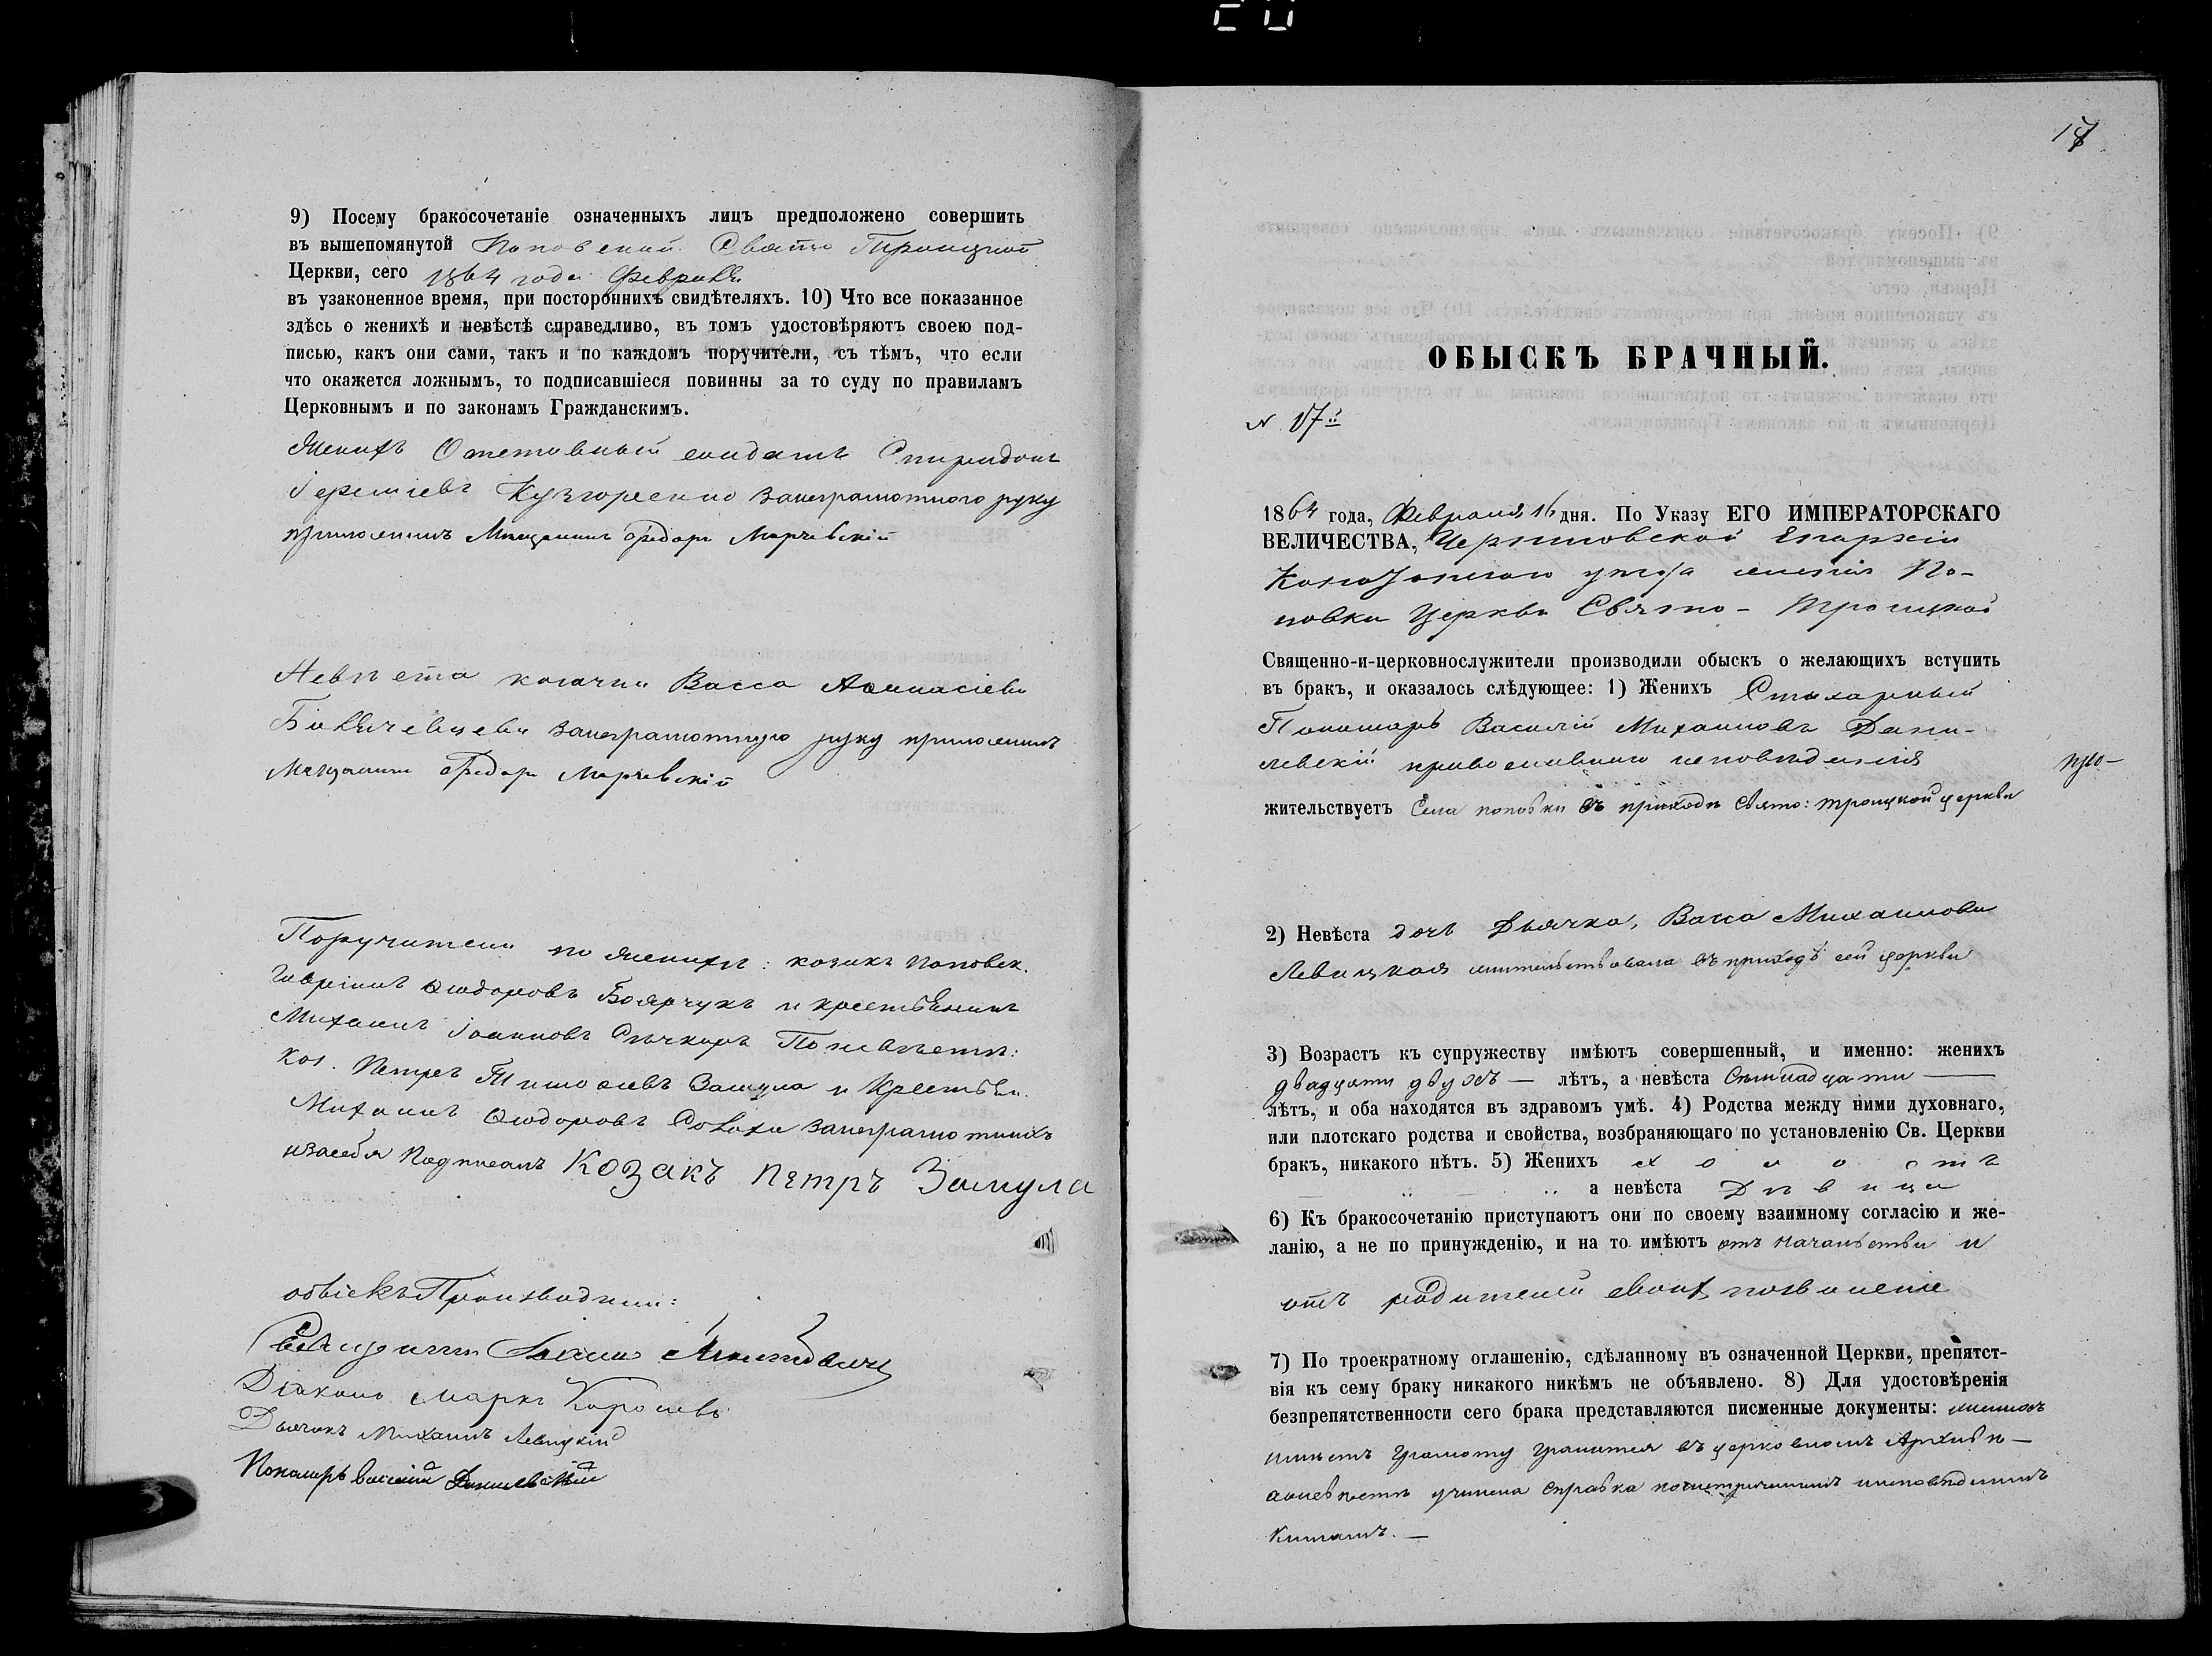 9) Посему бракосочетаніе означенныхъ лицъ предположено совершить
въ вышепомянутой Поповской Свято Троицкой
Церкви, сего 1864 года Февраля
въ узаконенное время, при постороннихъ свидѣтеляхъ. 10) Что все показанное
здѣсь о женихѣ и невѣстѣ справедливо, въ томъ удостовѣряютъ своею под-
писью, какъ они сами, такъ и по каждомъ поручители, съ тѣмъ, что если
что окажется ложнымъ, то подписавшіеся повинны за то суду по правиламъ
Церковнымъ и по законамъ Гражданскимъ.
Женихъ Отставный солдатъ Спиридонъ
руку
Мещанинъ Федоръ
Невѣста козачка Васса Афанасіева
руку приложилъ
Мещанинъ Федоръ
Поручители по женихѣ: козакъ Поповск.
Гавріилъ Федоровъ Боярчукъ и крестьянинъ
Михаилъ Іоанновъ По невѣстѣ:
коз. Петръ Замула и Крестьян.
Михаилъ Федоровъ занеграмотныхъ
изасебя Подписалъ Козакъ Петръ Замула
обыскъ Производили:
Священникъ
Діаконъ Маркъ Королевъ
Дьячокъ Михаилъ Левицкій
Пономарь Василій Данилевскій
17
ОБЫСКЪ БРАЧНЫЙ.
N. 17й
1864 года, Февраля 16 дня. По Указу ЕГО ИМПЕРАТОРСКАГО
ВЕЛИЧЕСТВА, Черниговской Епархіи
Конотопскаго уѣзда селенія По-
повки Церкви Свято-Троицкой
Священно-и-церковнослужители производили обыскъ о желающихъ вступить
въ бракъ, и оказалось слѣдующее: 1) Женихъ Стихарный
Пономарь Василій Михаиловъ Дани-
левскій православнаго исповѣданія
жительствуетъ Села поповки въ приходѣ Свято: троицкой церкви
2) Невѣста дочь Дьячка, Васса Михаилова
Левицкая жительствовала въ приходѣ сей церкви
3) Возрастъ къ супружеству имѣютъ совершенный, и именно: женихъ
двадцати двухъ — лѣтъ, а невѣста Семнадцати —
лѣтъ, и оба находятся въ здравомъ умѣ. 4) Родства между ними духовнаго,
или плотскаго родства и свойства, возбраняющаго по установленію Св. Церкви
бракъ, никакого нѣтъ. 5) Женихъ холостъ
а невѣста Дѣвица
6) Къ бракосочетанію приступаютъ они по своему взаимному согласію и же-
ланію, а не по принужденію, и на то имѣютъ отъ начальства и
отъ родителей своихъ позволеніе
7) По троекратному оглашенію, сдѣланному въ означенной Церкви, препятст-
вія къ сему браку никакого никѣмъ не объявлено. 8) Для удостовѣренія
безпрепятственности сего брака представляются писменные документы: женихъ
имѣетъ Грамоту хранится въ церковномъ Архивѣ —
аоневѣстѣ учинена справка исповѣднымъ
Книгамъ. —